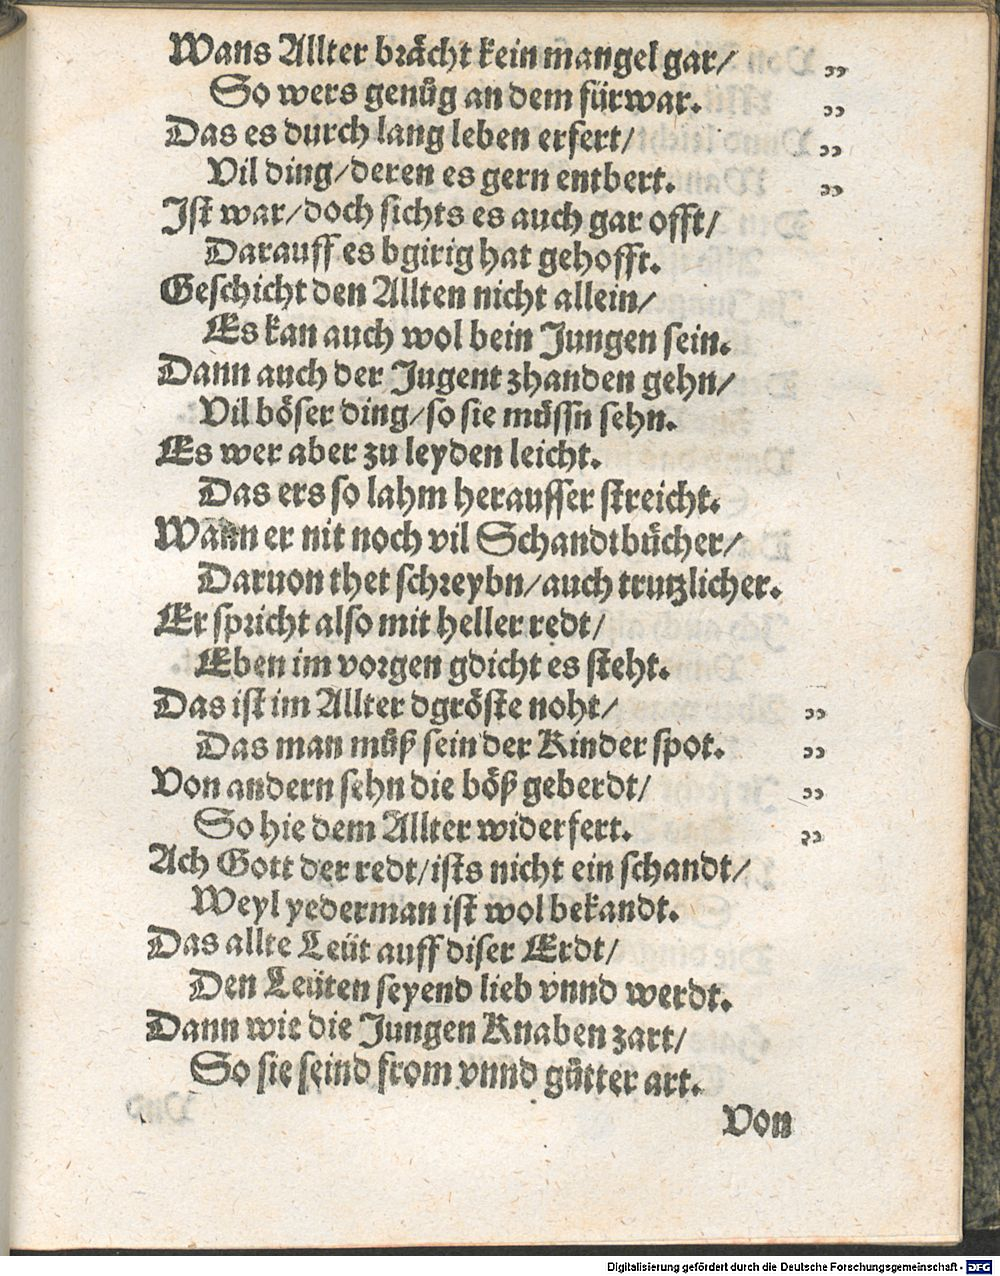 Wans Allter brächt kein mangel gar/ „
So wers genůg an dem fürwar. „
Das es durch lang leben erfert/ „
Vil ding/deren es gern entbert. „
Ist war/doch sichts es auch gar offt/
Darauff es bgirig hat gehofft.
Geschicht den Allten nicht allein/
Es kan auch wol bein Jungen sein.
Dann auch der Jugent zhanden gehn/
Vil böser ding/so sie müssn sehn.
Es wer aber zu leyden leicht.
Das ers so lahm herausser streicht.
Wann er nit noch vil Schandtbücher/
Daruon thet schreybn/auch trutzlicher.
Er spricht also mit heller redt/
Eben im vorgen gdicht es steht.
Das ist im Allter dgröste noht/ „
Das man můß sein der Kinder spot. „
Von andern sehn die böß geberdt/ „
So hie dem Allter widerfert. „
Ach Gott der redt/ists nicht ein schandt/
Weyl yederman ist wol bekandt.
Das allte Leüt auff diser Erdt/
Den Leüten seyend lieb vnnd werdt.
Dann wie die Jungen Knaben zart/
So sie seind from vnnd gůtter art.
Von
Digitalisierung gefördert durch die Deutsche Forschungsgemeinschaft - DFG